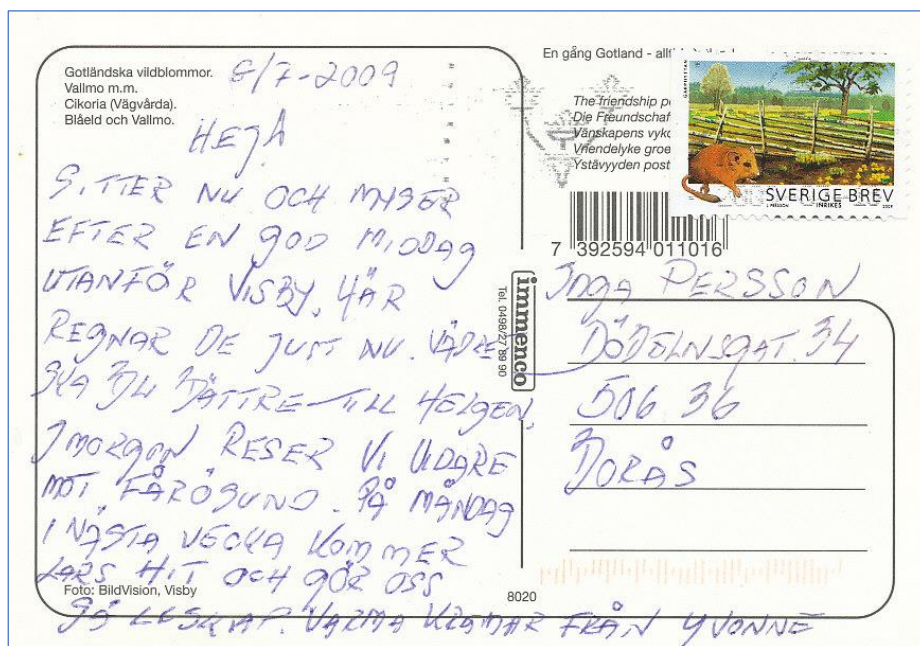 Gotländska vildblommor.
Vallmo m.m.
Cikoria (Vägvårda).
Blåeld och Vallmo.
/7-2009
HEJ
SITTER NU OCH MYSER
EFTER EN GOD MIDDAG
UTANFÖR VISBY. HÄR
REGNAR DE JUST NU. VÄDRET
SKA BLI BÄTTRE TILL HELGEN.
IMORGON RESER VI VIDARE
MOT FÅRÖSUND. PÅ MÅNDAG
I NÄSTA VECKA KOMMER
LARS HIT OCH GÖR OSS
SÄLLSKAP. VARMA KRAMAR FRÅN YVONNE
Foto: BildVision, Visby
8020
immenco
Tel. 0498/27 89 90
En gång Gotland - allt
The friendship p
Die Freundschaf
Vänskapens vyko
Vriendelyke groe
Ystävyyden post
SVERIGE BREV
INRIKES
7 392594 011016
INGA PERSSON
506 36
BORÅS